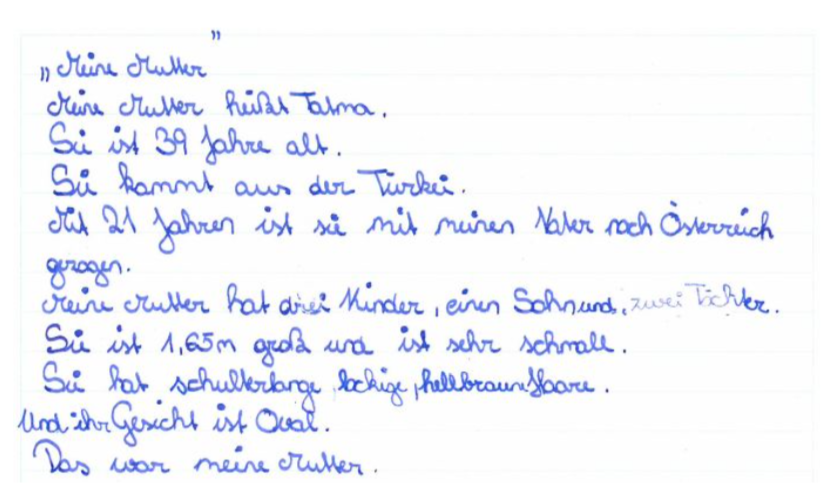 „Meine Mutter"
Meine Mutter heißt Fatma.
Sie ist 39 Jahre alt.
Sie kammt aus der Türkei.
Mit 21 Jahren ist sie mit meinen Vater nach Österreich
gezogen.
Meine Mutter hat drei Kinder, einen Sohn und, zwei Töchter.
Sie ist 1,65m groß und ist sehr schmall.
Sie hat schulterlange lockige, hellbraune Haare.
Und ihr Gesicht ist Oval.
Das war meine Mutter.